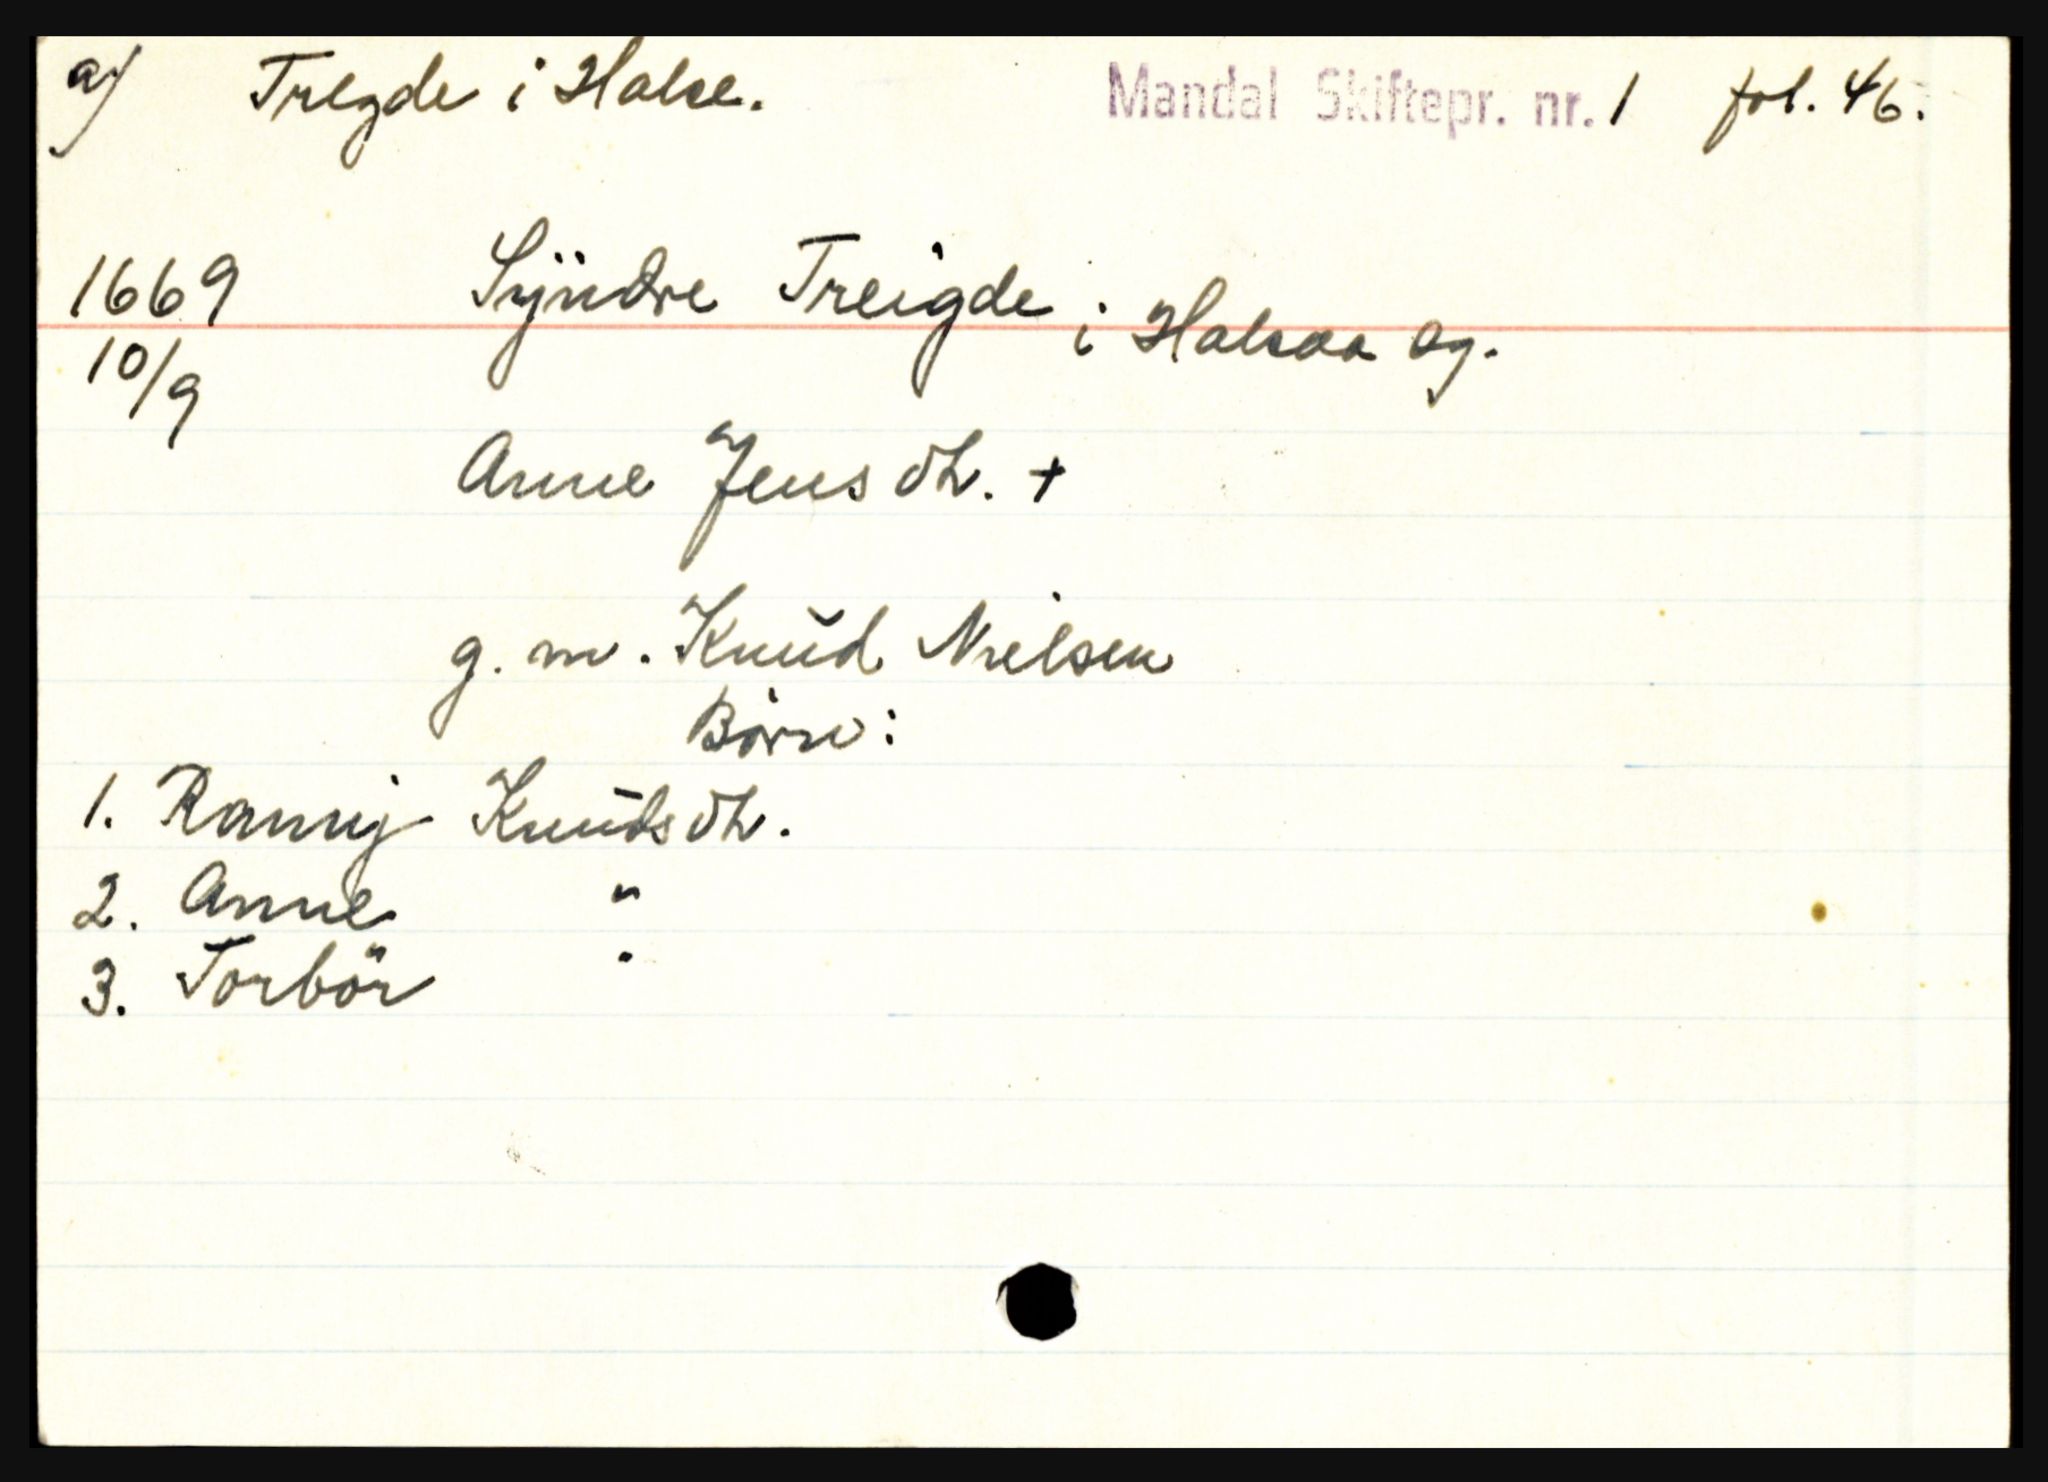 a/ Tregde i Halse. Mandal Skiftepr. nr. 1 fol. 46.
1669 Syndre Treigde i Halsaa Sg.
10/9
Anne Jensdtr. +
g. m. Knud Nielsen
Børn:
1. Rannj Knudsdtr.
2. Anne "
3. Torbör "